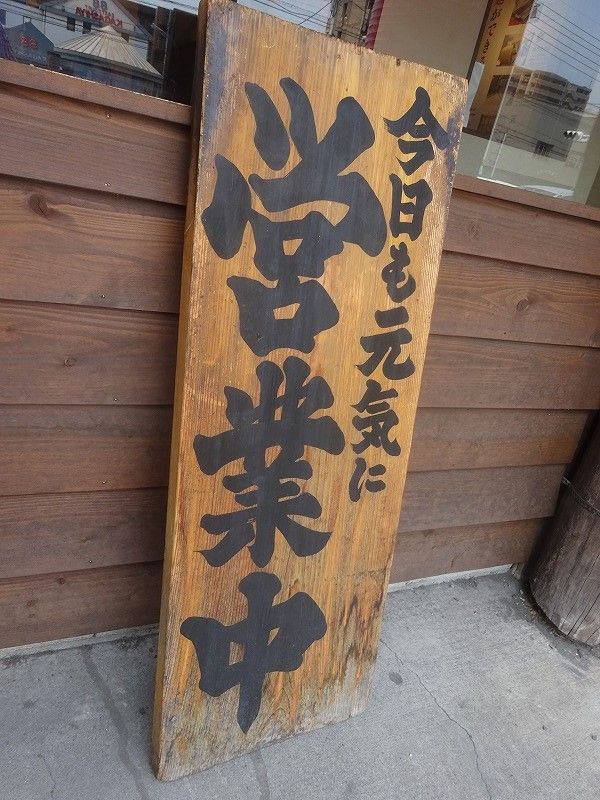 今日も元気に
営業中